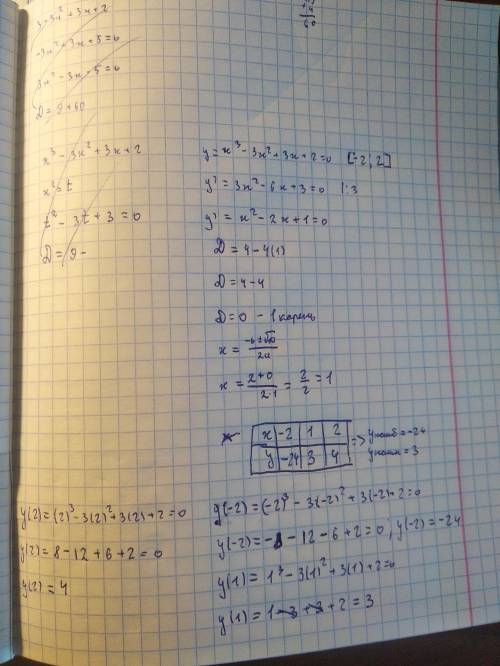 3-3x²+3x+2
-3x²+3x+5=0
3x²-3x-5=0
D=9+60
60
x³-3x²+3x+2
x²=t
t²-3t+3=0
D=9-
y=x³-3x²+3x+2=0 [-2; 2]
y'=3x²-6x+3=0 |:3
y'=x²-2x+1=0
D=4-4(1)
D=4-4
D=0 - 1 корень
x=(-b±√D)/2a
x=(2+0)/(2·1)=2/2=1
x -2 1 2
y -24 3 4
=> yнаиб=-24
yнаим=3
y(2)=(2)³-3(2)²+3(2)+2=0
y(2)=8-12+6+2=0
y(2)=4
y(-2)=(-2)³-3(-2)²+3(-2)+2=0
y(-2)=-8-12-6+2=0, y(-2)=-24
y(1)=1³-3(1)²+3(1)+2=0
y(1)=1-3+3+2=3